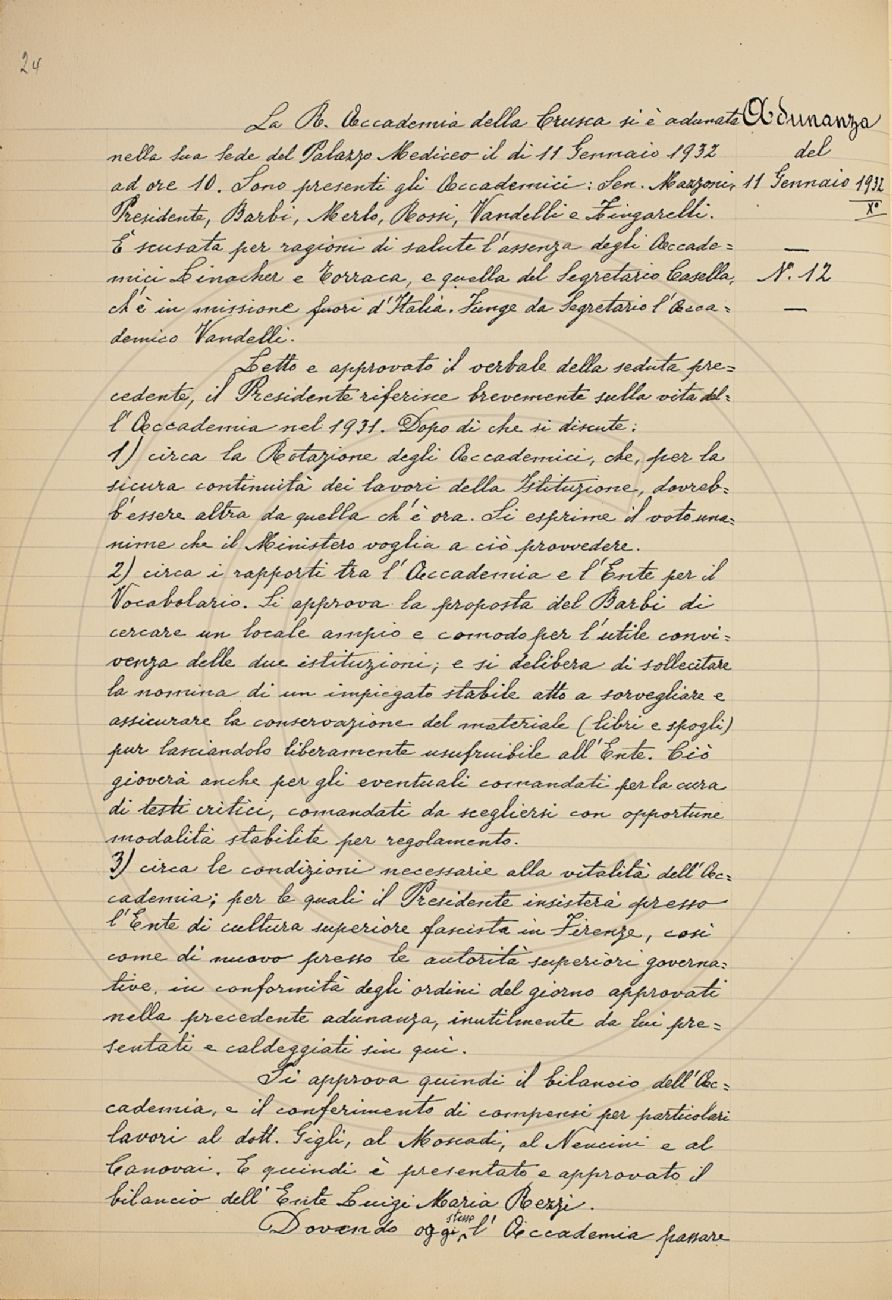 24
La R. Accademia della Crusca si è adunata
nella sua sede del Palazzo Mediceo il dì 11 Gennaio 1932
ad ore 10. Sono presenti gli Accademici: Sen. Mazzoni,
Presidente, Barbi, Merlo, Rossi, Vandelli e Zingarelli.
È scusata per ragioni di salute l'assenza degli Accade=
mici Linacher e Torraca, e quella del Segretario Casella,
ch'è in missione fuori d'Italia. Funge da Segretario l'Acca=
demico Vandelli.
Adunanza
del
11 Gennaio 1932
Xº
N. 12
Letto e approvato il verbale della seduta pre=
cedente, il Presidente riferisce brevemente sulla vita del=
l'Accademia nel 1931. Dopo di che si discute:
1) circa la Rotazione degli Accademici, che, per la
sicura continuità dei lavori della Istituzione, dovreb=
b'essere altra da quella ch'è ora. Si esprime il voto una=
nime che il Ministero voglia a ciò provvedere.
2) circa i rapporti tra l'Accademia e l'Ente per il
Vocabolario. Si approva la proposta del Barbi di
cercare un locale ampio e comodo per l'utile convi=
venza delle due istituzioni; e si delibera di sollecitare
la nomina di un impiegato stabile atto a sorvegliare e
assicurare la conservazione del materiale (libri e spogli)
pur lasciandolo liberamente usufruibile all'Ente. Ciò
gioverà anche per gli eventuali comandati per la cura
di testi critici, comandati da scegliersi con opportune
modalità stabilite per regolamento.
3) circa le condizioni necessarie alla vitalità dell'Ac=
cademia; per le quali il Presidente insisterà presso
l'Ente di cultura superiore fascista in Firenze, così
come di nuovo presso le autorità superiori governa=
tive, in conformità degli ordini del giorno approvati
nella precedente adunanza, inutilmente da lui pre=
sentati e caldeggiati sin qui.
Si approva quindi il bilancio dell'Ac=
cademia, e il conferimento di compensi per particolari
lavori al dott. Gigli, al Moscadi, al Nencini e al
Canovai. E quindi è presentato e approvato il
bilancio dell'Ente Luigi Maria Rezzi.
Dovendo oggi stesso l'Accademia passare